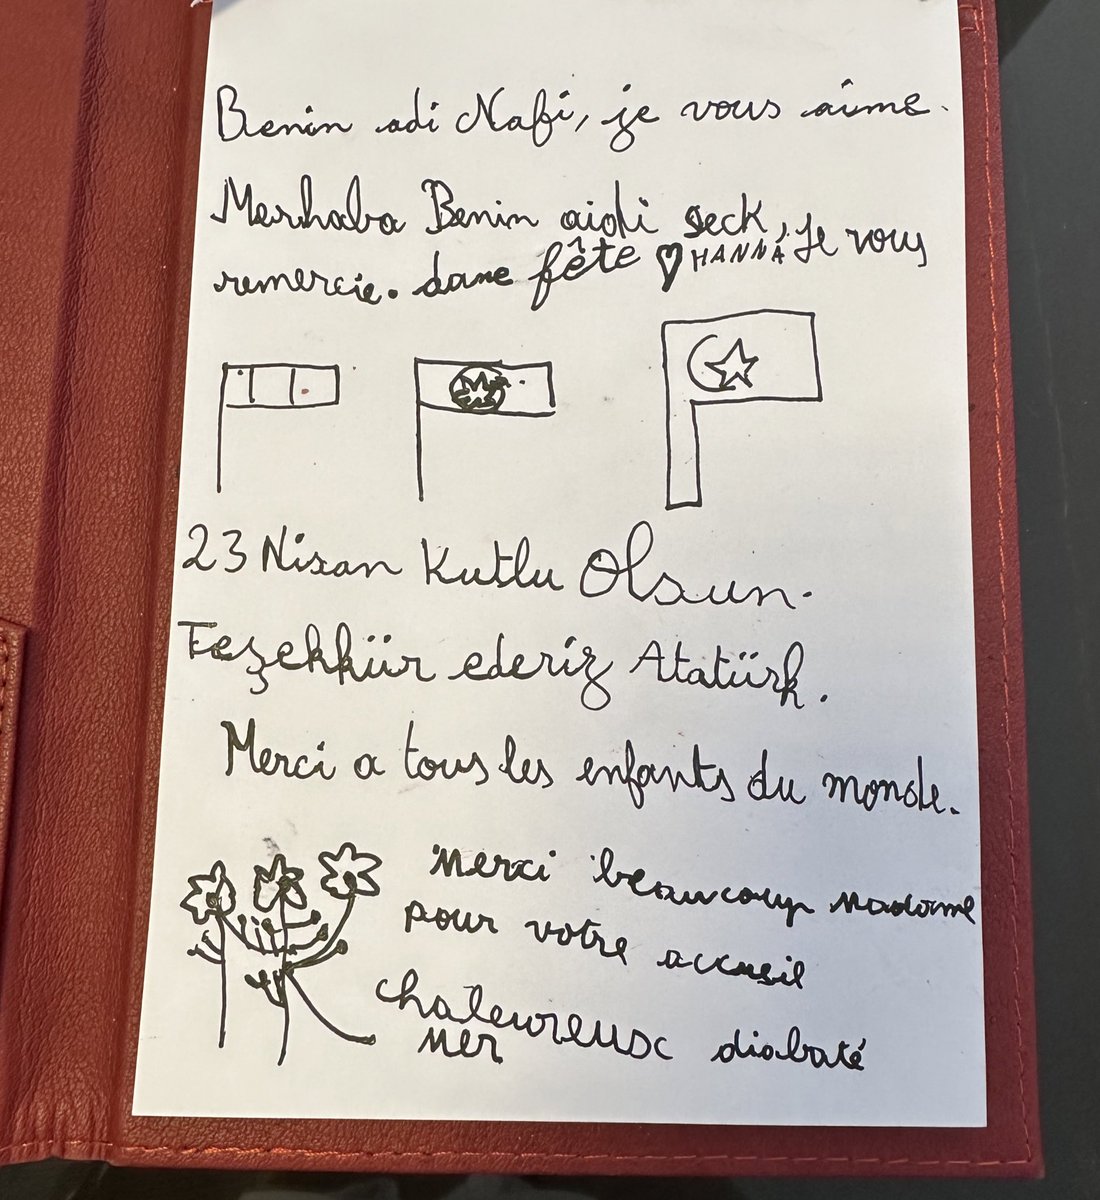 Benin adi Nafi, je vous aime.
Merhaba Benin aidi seck, Je vous
remercie. dane fête HANNA
23 Nisan Kutlu Olsun.
Teşekkür ederiz Atatürk.
Merci a tous les enfants du monde.
Merci beaucoup Madame
pour votre accueil
chaleureuse diabaté
Mer